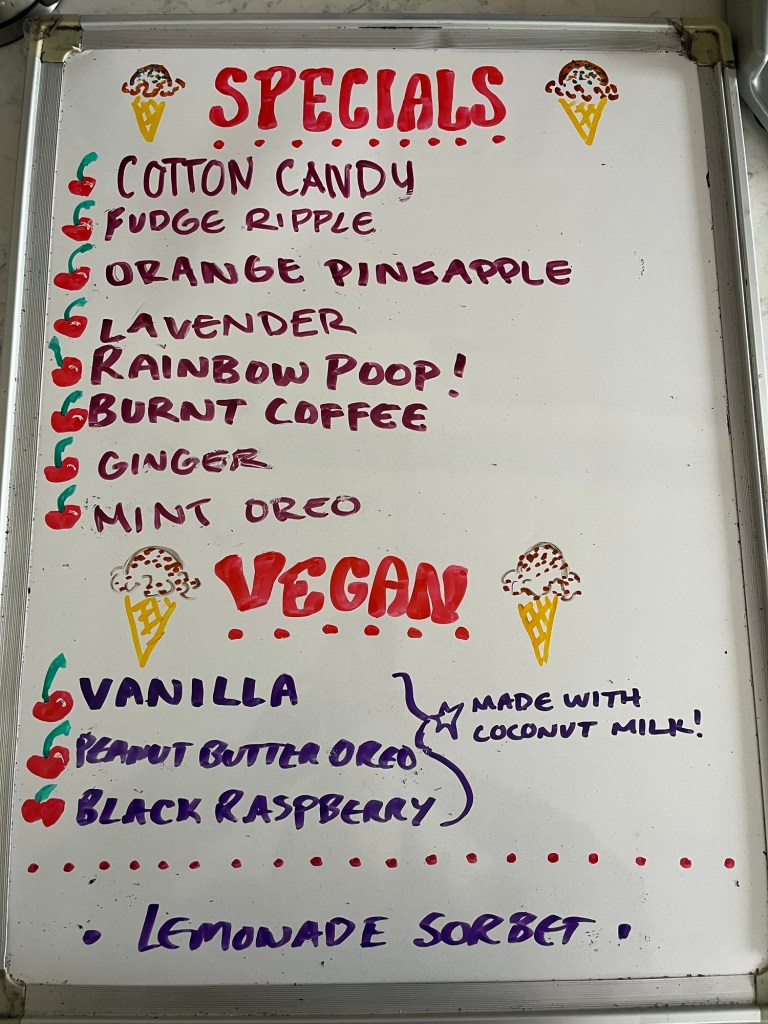 SPECIALS
COTTON CANDY
FUDGE RIPPLE
ORANGE PINEAPPLE
LAVENDER
RAINBOW POOP!
BURNT COFFEE
GINGER
MINT OREO
VEGAN
VANILLA
PEANUT BUTTER OREO
BLACK RASPBERRY
MADE WITH
COCONUT MILK!
• LEMONADE SORBET •